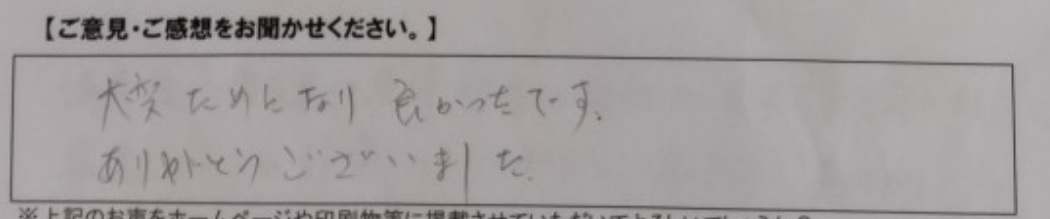 【ご意見・ご感想をお聞かせください。】
大変ためになり良かったです。
ありがとうございました。
※上記のお声をホームページや印刷物等に掲載させていただいてよろしいでしょうか?